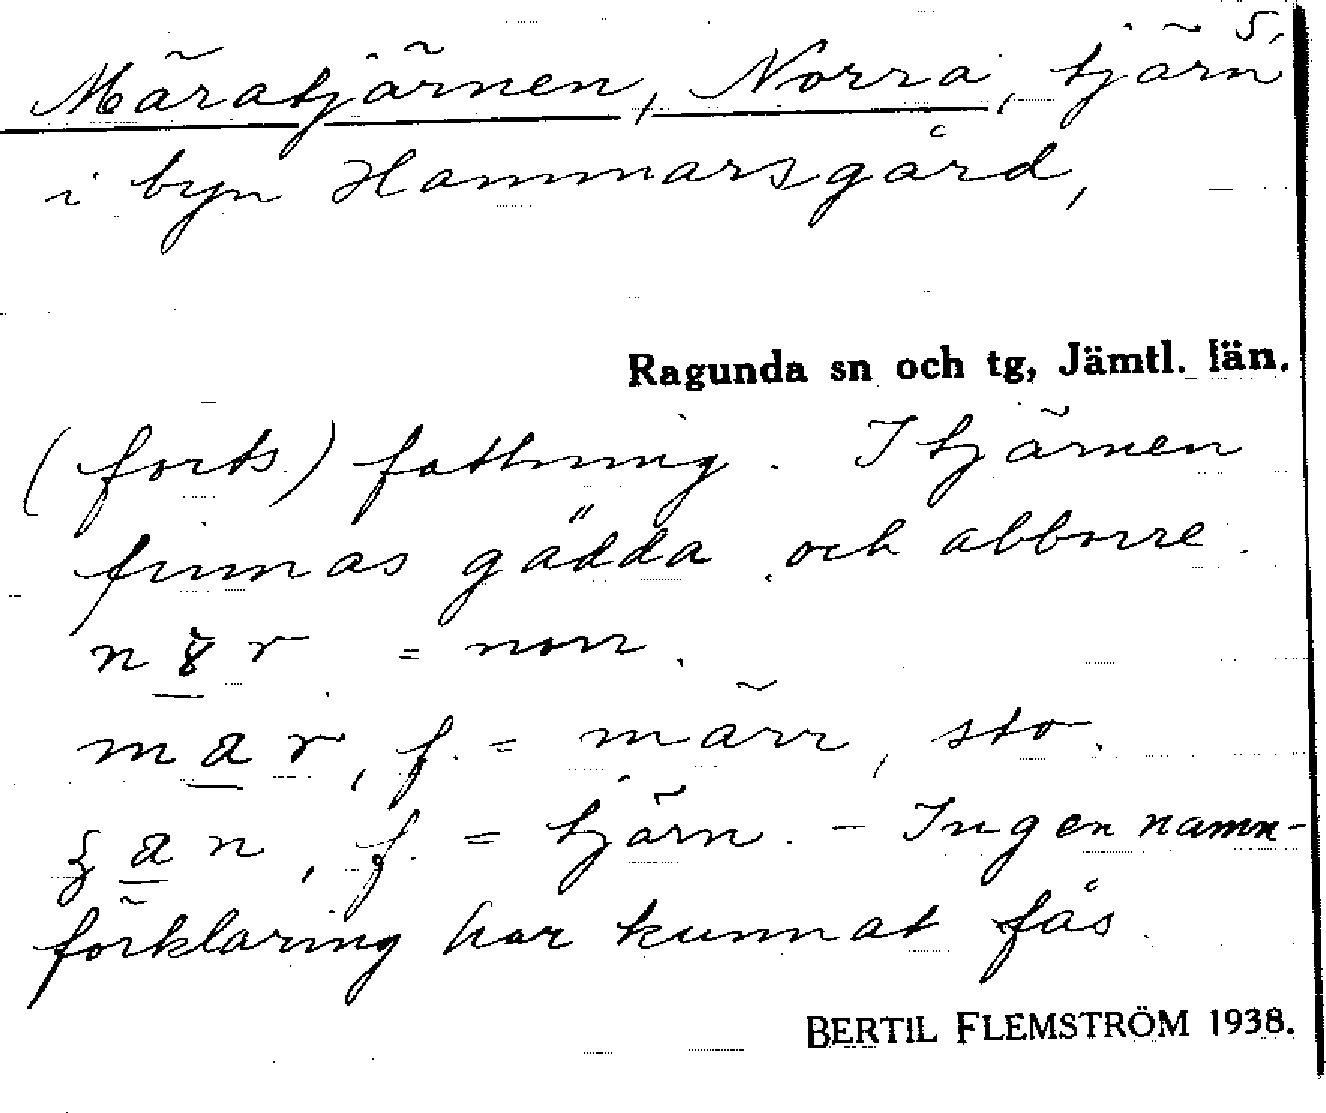 5,
Märatjärnen, Norra, tjärn
i byn Hammarsgård,
Ragunda sn och tg, Jämtl. län.
(forts) fattning. I tjärnen
finnas gädda och abborre.
= norr.
mar, f. = märr, sto.
f. = tjärn. – Ingen namn-
förklaring har kunnat fås.
BERTIL FLEMSTRÖM 1938.